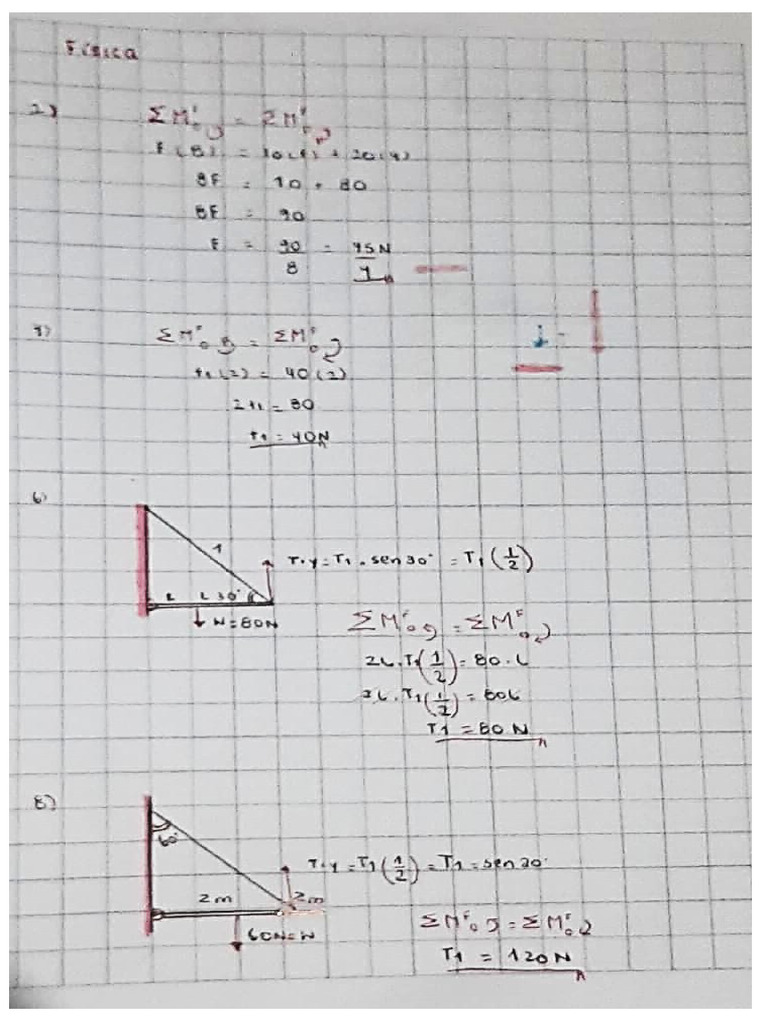 Física
2)
ΣM°F = ΣM°F
F(8) = 10(1) + 20(4)
8F = 10 + 80
8F = 90
F = 90/8 = 45N
ΣM°F = ΣM°F
t1(2) = 40(2)
2t1 = 80
t1 = 40N
6)
1
T1y = T1 . sen30° = T1(1/2)
L L 30°
W = 80N
ΣM°F = ΣM°F
2L.T1(1/2) = 80.L
2L.T1(1/2) = 80L
T1 = 80N
8)
60°
T1y = T1(1/2) = T1 = sen30°
2m 2m
60N=W
ΣM°F = ΣM°F
T1 = 120N